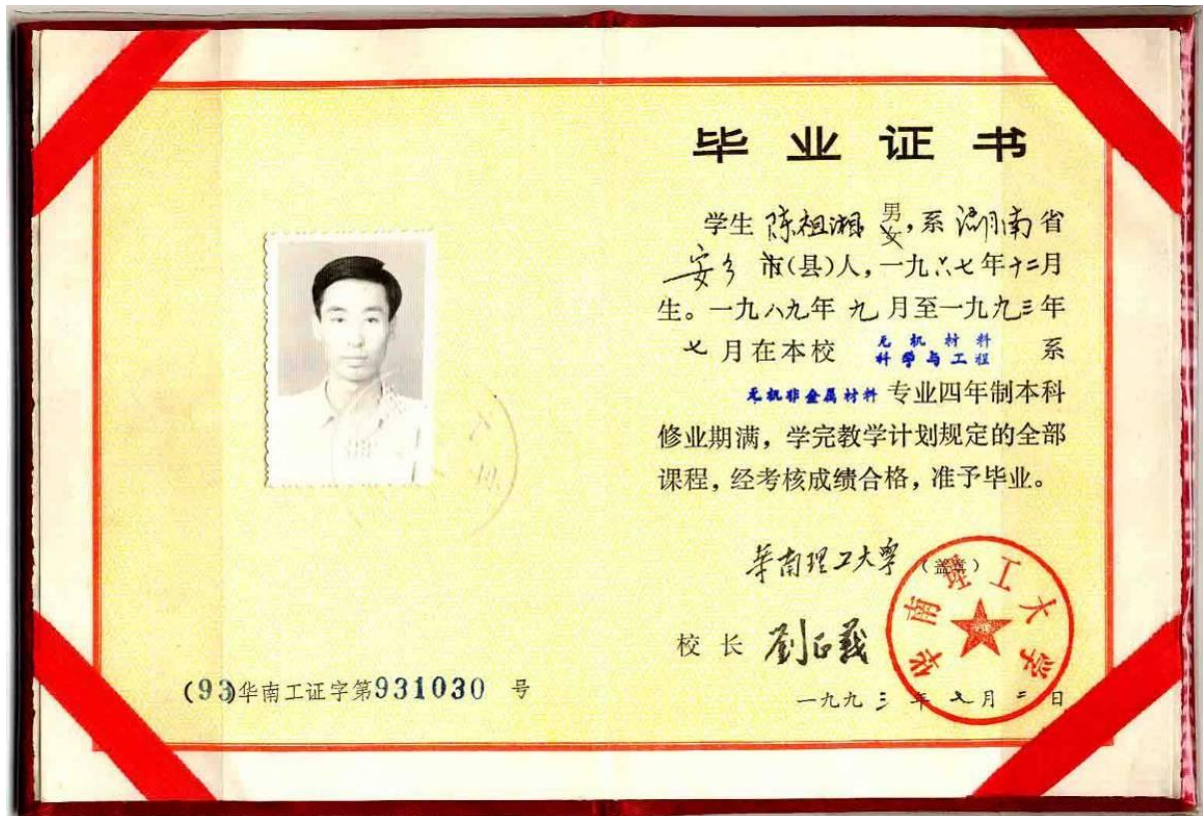 毕业证书
学生 陈祖湘 男女,系 湖南省
安乡 市(县)人,一九六七年十二月
生。一九八九年 九 月至一九九三年
七 月在本校 无机材料科学与工程 系
无机非金属材料 专业四年制本科
修业期满,学完教学计划规定的全部
课程,经考核成绩合格,准予毕业。
华南理工大学 (盖章)
华南理工大学
校 长 刘正義
(93)华南工证字第931030 号
一九九三 年 七 月 二 日